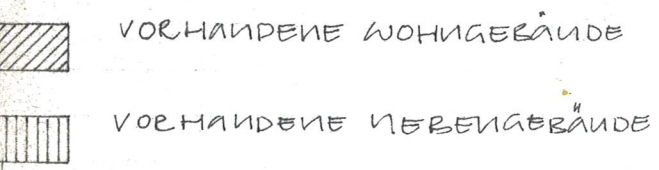 VORHANDENE WOHNGEBÄUDE
VORHANDENE NEBENGEBÄUDE